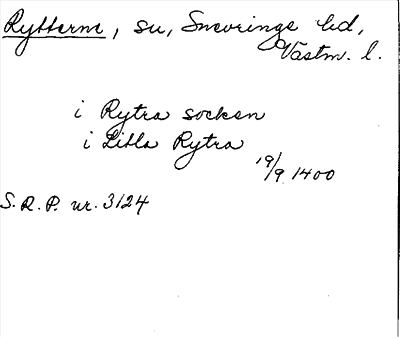 Rytterne, sn, Snevringe hd,
Västm. l.
i Rytra socken
i Litla Rytra
19/9 1400
S.R.P. nr. 3124